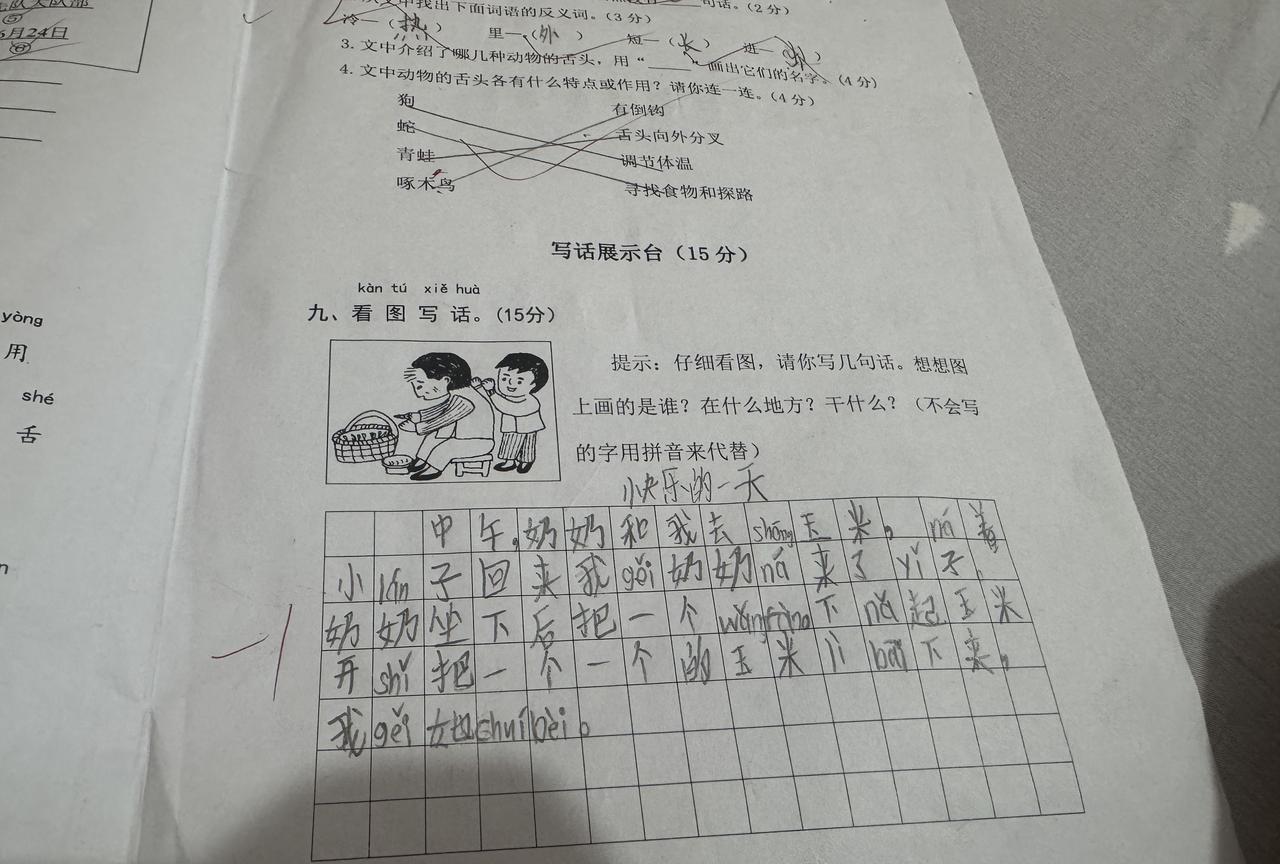 队大队部
⑤
月24日
⑥
yòng
用
shé
舌
文中找出下面词语的反义词。(3 分)
句话。(2 分)
冷—（热） 里—（外 ） 短—（长） 进—（ ）
3. 文中介绍了哪几种动物的舌头，用“____”画出它们的名字。(4 分)
4. 文中动物的舌头各有什么特点或作用？请你连一连。(4 分)
狗 有倒钩
蛇 舌头向外分叉
青蛙 调节体温
啄木鸟 寻找食物和探路
写话展示台（15 分）
kàn tú xiě huà
九、看 图 写 话。（15分）
提示：仔细看图，请你写几句话。想想图
上画的是谁？在什么地方？干什么？（不会写
的字用拼音来代替）
快乐的一天
中午，奶奶和我去shōng玉米。ná着
小lán子回来我gěi奶奶ná来了yǐ子，
奶奶坐下后把一个 下ná起玉米
开shǐ把一个一个的玉米lì bāi下来。
我gěi她chuíbèi。